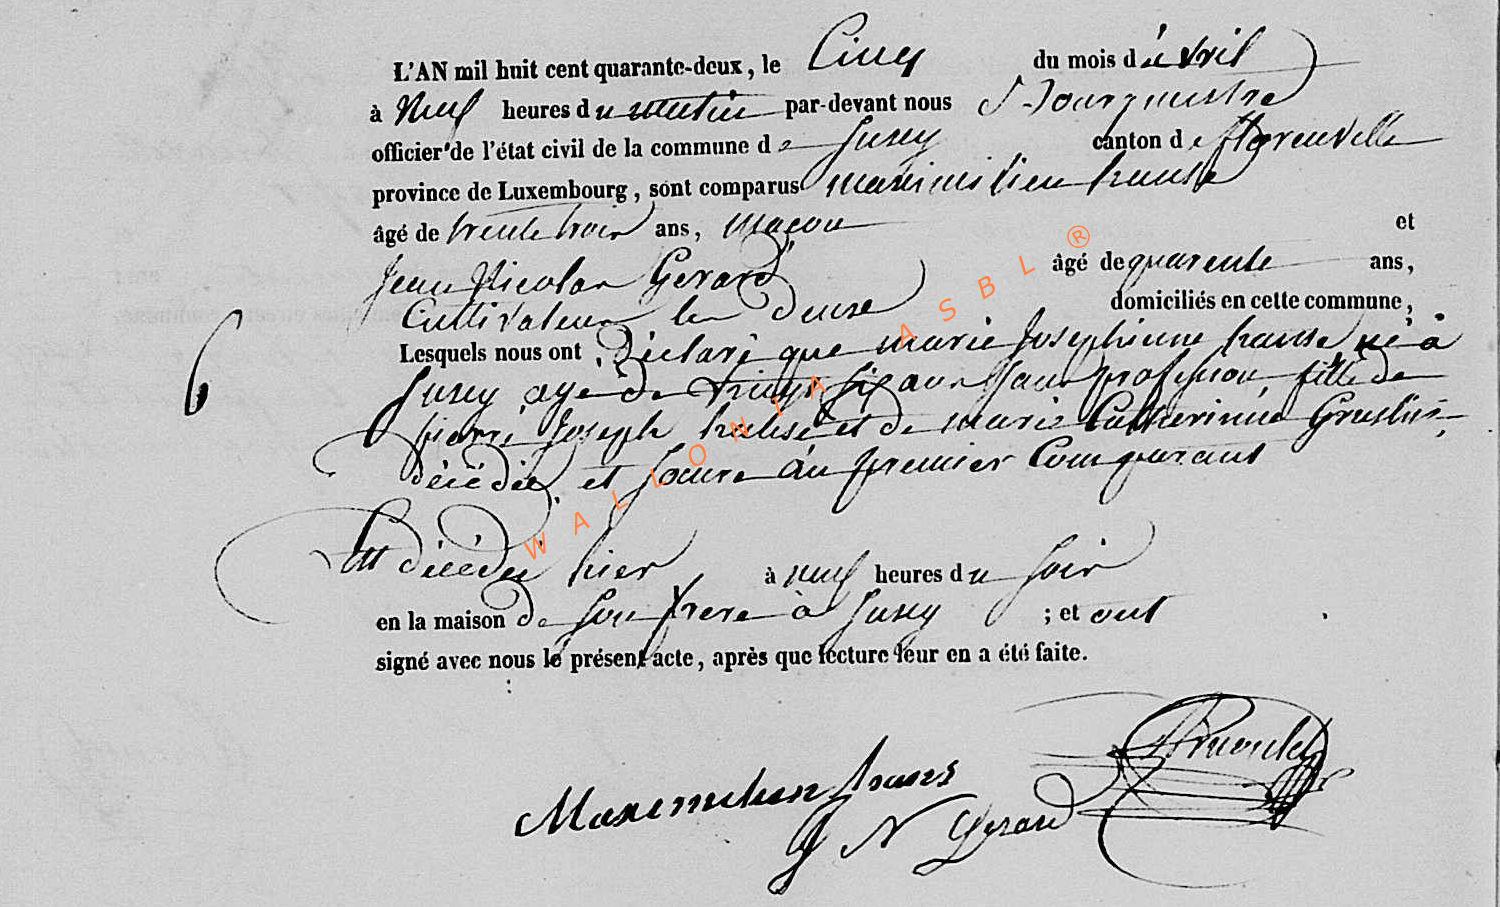 L'AN mil huit cent quarante-deux, le Cinq du mois d'avril
à Neuf heures du matin par-devant nous Bourgmestre
officier de l'état civil de la commune de Suxy canton de florenville
province de Luxembourg, sont comparus maximilien hanse
âgé de trente trois ans, maçon et
Jean Nicolas Gerard âgé de quarente ans,
Cultivateur domiciliés en cette commune,
Lesquels nous ont déclaré que marie Josephinne hanse né à
Suxy agé de vingt six ans sans profession, fille de
pierre Joseph hanse et de marie Catherinne
décédée et soeure du premier Comparant
6
Est décédée hier à neuf heures du soir
en la maison de son frere à Suxy ; et ont
signé avec nous le présent acte, après que lecture leur en a été faite.
Maximilien hans
J N Gerard
WALLONIA ASBL ®